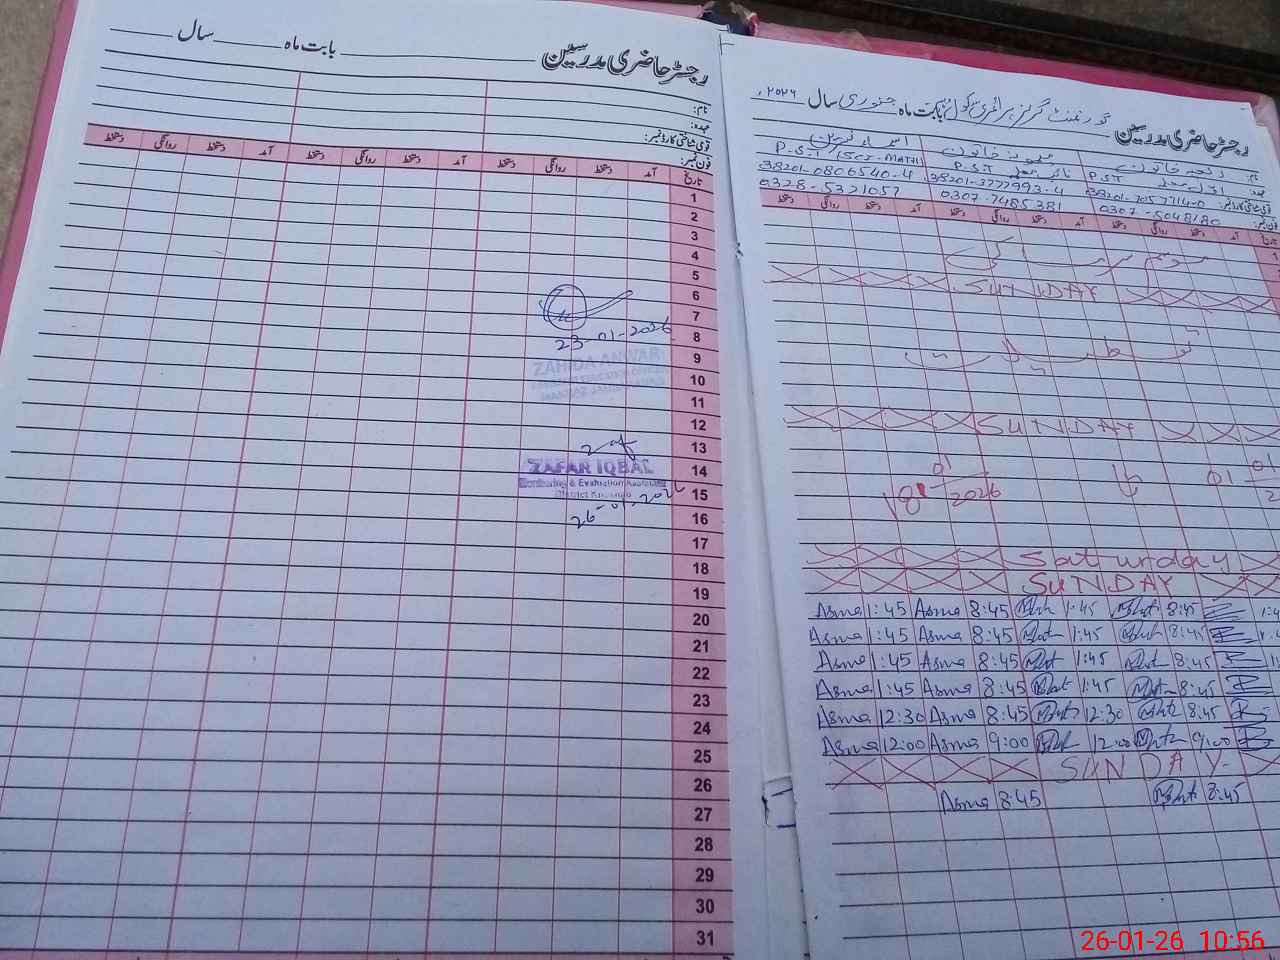 رجسٹر حاضری مدرسین بابت ماہ سال
نام:
عہدہ:
قومی شناختی کارڈ نمبر:
فون نمبر:
تاریخ آمد دستخط روانگی دستخط آمد دستخط روانگی دستخط آمد دستخط روانگی دستخط
1
2
3
4
5
6
7
8
9
10
11
12
13
14
15
16
17
18
19
20
21
22
23
24
25
26
27
28
29
30
31
23-01-2026
ZAHIDA ANWAR
ZAFAR IQBAL
Monitoring & Evaluation Assistant
26-01-2026
رجسٹر حاضری مدرسین گورنمنٹ گرلز پرائمری سکول بابت ماہ جنوری سال ۲۰۲۶ء
نام:
P.S.T P.S.T P.S.T / Sci-MATH
38201-7057714-0 38201-3777993-4 38201-0806540-4
0307-5048180 0307-7485381 0328-5321057
آمد دستخط روانگی دستخط آمد دستخط روانگی دستخط
موسم سرما کی
SUNDAY
تعطیلات
SUNDAY
01 تا 18 01/2026
Saturday
SUNDAY
Asma 1:45 Asma 8:45 1:45 8:45
Asma 1:45 Asma 8:45 1:45 8:45
Asma 1:45 Asma 8:45 1:45 8:45
Asma 1:45 Asma 8:45 1:45 8:45
Asma 12:30 Asma 8:45 12:30 8:45
Asma 12:00 Asma 9:00 12:00 9:00
SUNDAY
Asma 8:45 8:45
26-01-26 10:56